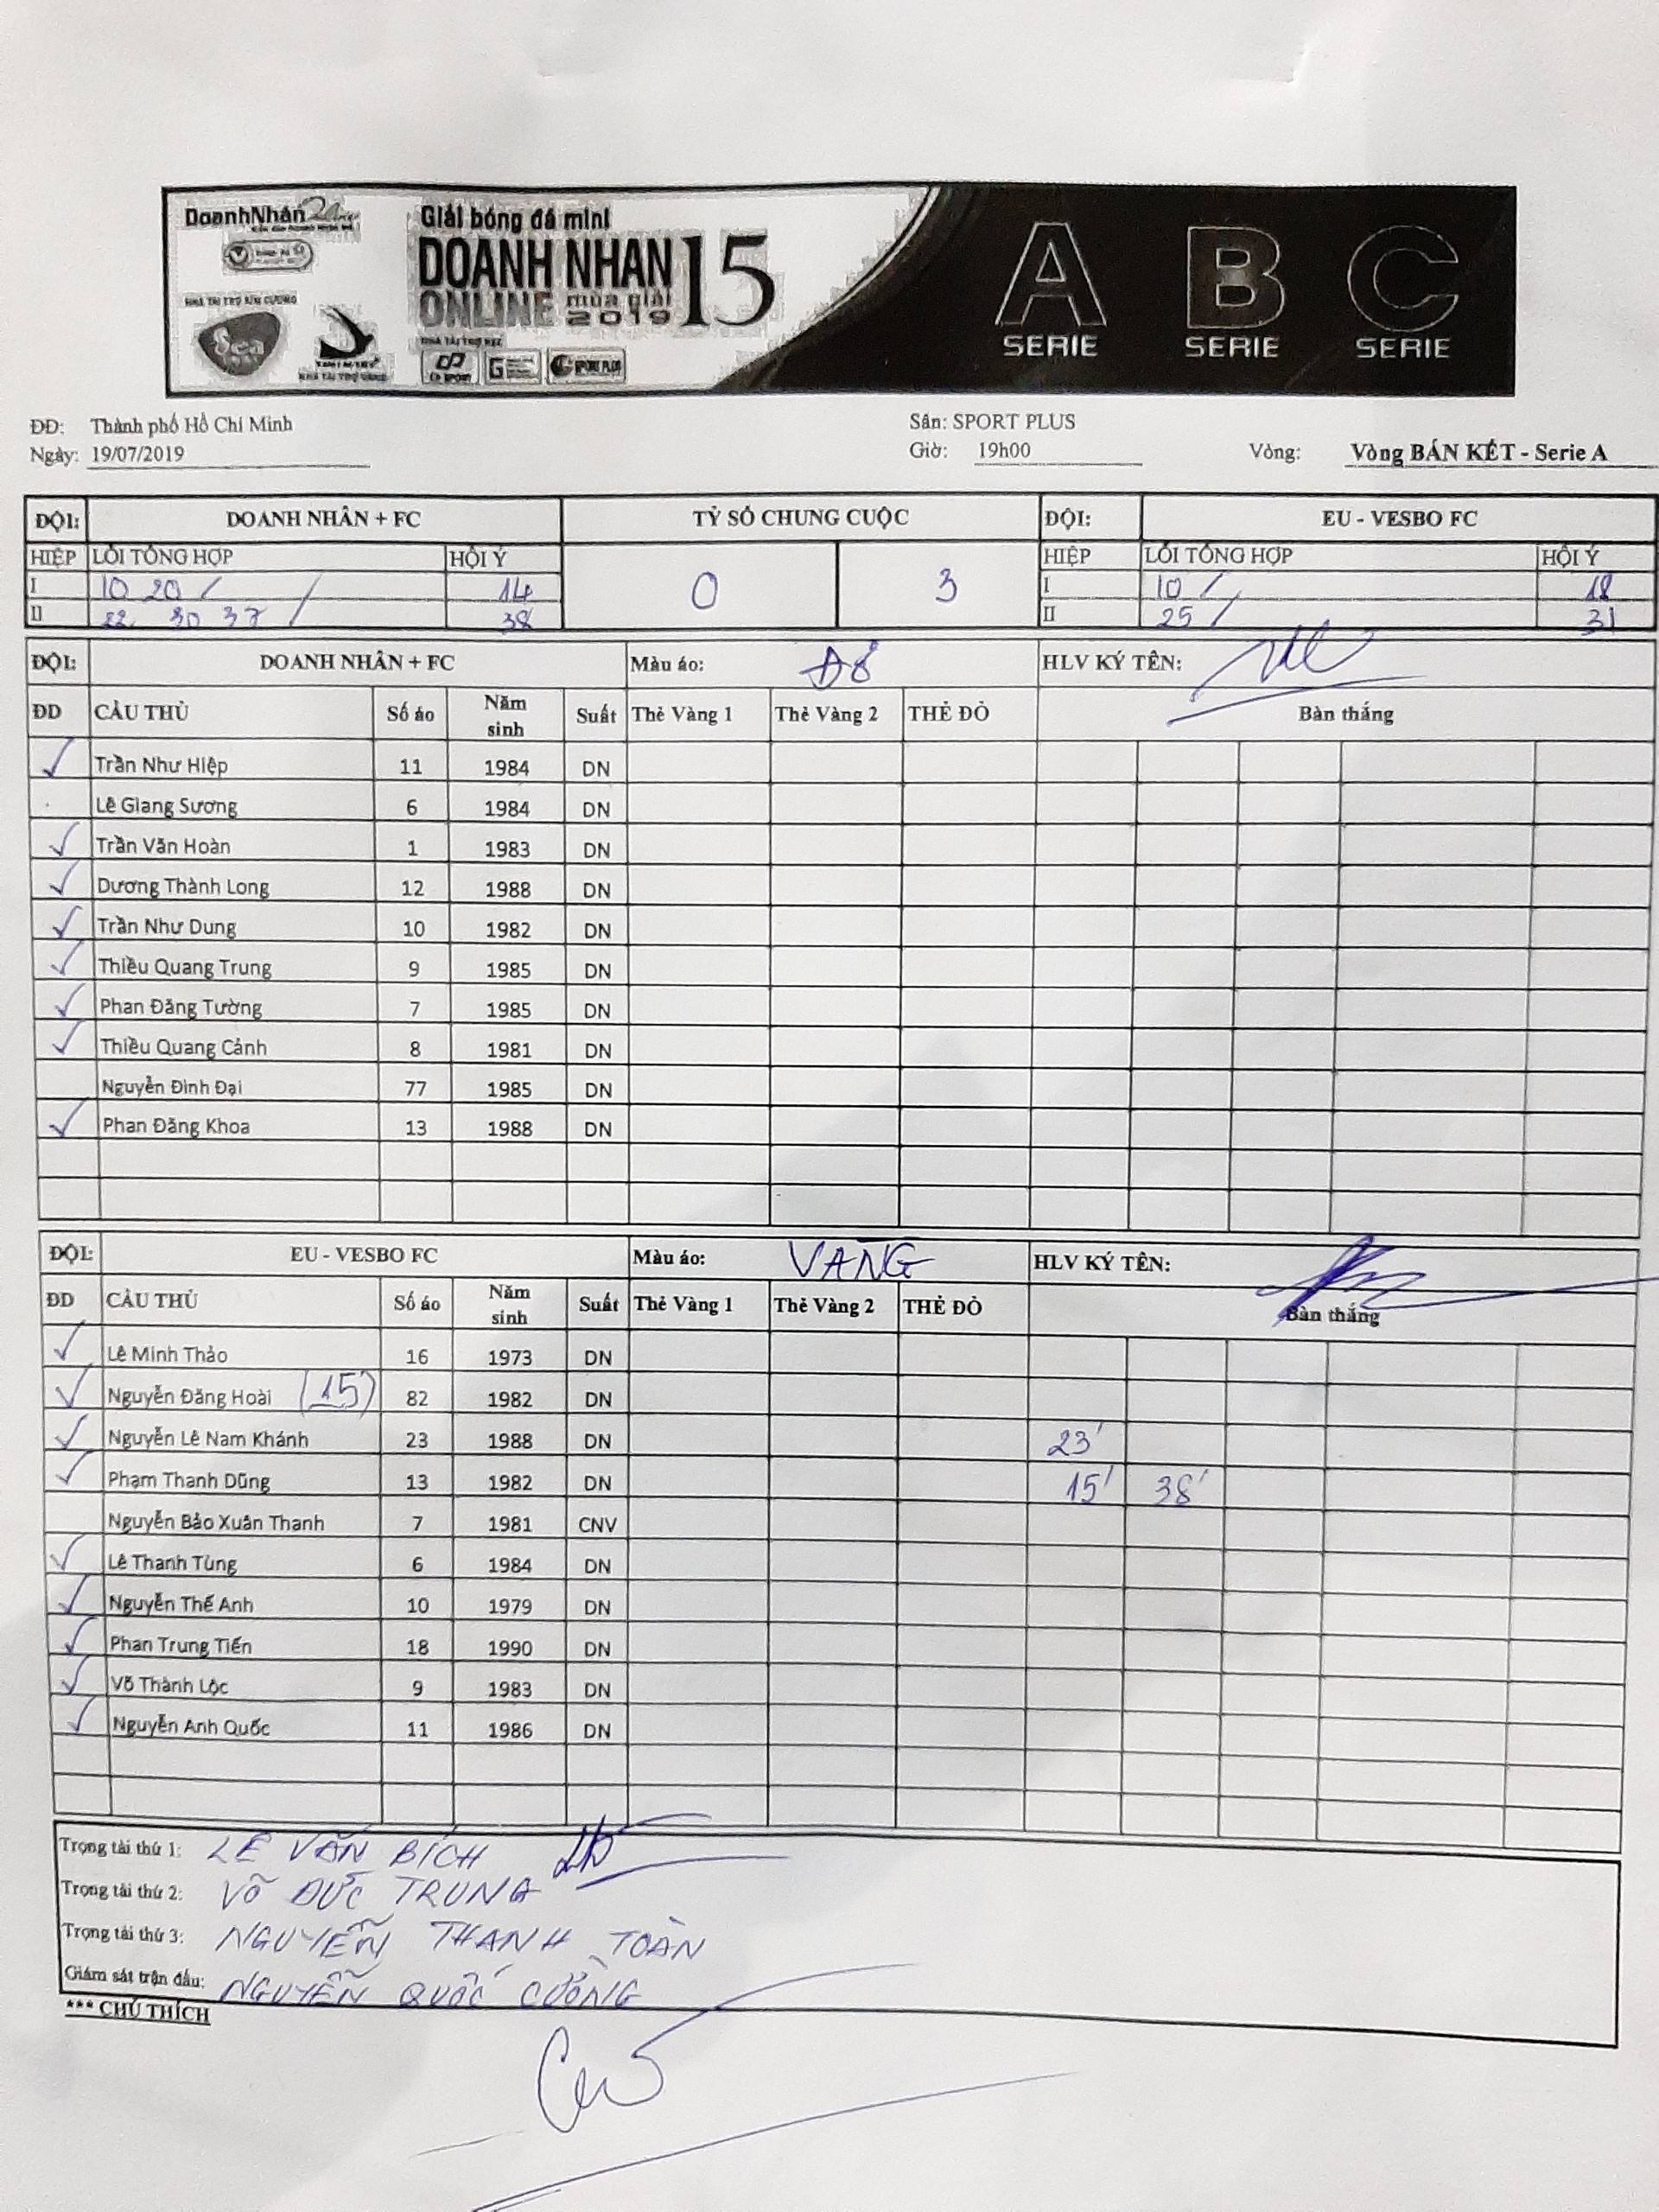 DoanhNhân24
NHÀ TÀI TRỢ KIM CƯƠNG
Sea
NHÀ TÀI TRỢ VÀNG
Giải bóng đá mini
DOANH NHAN 15
ONLINE mùa giải 2019
SPORT PLUS
A B C
SERIE SERIE SERIE
ĐĐ: Thành phố Hồ Chí Minh Sân: SPORT PLUS
Ngày: 19/07/2019 Giờ: 19h00 Vòng: Vòng BÁN KẾT - Serie A
ĐỘI: DOANH NHÂN + FC TỶ SỐ CHUNG CUỘC ĐỘI: EU - VESBO FC
HIỆP LỖI TỔNG HỢP HỘI Ý 0 3 HIỆP LỖI TỔNG HỢP HỘI Ý
I 10 20 / 14 I 10 / 18
II 22 30 37 / 38 II 25 / 31
ĐỘI: DOANH NHÂN + FC Màu áo: ĐỎ HLV KÝ TÊN:
ĐD CẦU THỦ Số áo Năm sinh Suất Thẻ Vàng 1 Thẻ Vàng 2 THẺ ĐỎ Bàn thắng
✓ Trần Như Hiệp 11 1984 DN
Lê Giang Sương 6 1984 DN
✓ Trần Văn Hoàn 1 1983 DN
✓ Dương Thành Long 12 1988 DN
✓ Trần Như Dung 10 1982 DN
✓ Thiều Quang Trung 9 1985 DN
✓ Phan Đăng Tường 7 1985 DN
✓ Thiều Quang Cảnh 8 1981 DN
Nguyễn Đình Đại 77 1985 DN
✓ Phan Đăng Khoa 13 1988 DN
ĐỘI: EU - VESBO FC Màu áo: VÀNG HLV KÝ TÊN:
ĐD CẦU THỦ Số áo Năm sinh Suất Thẻ Vàng 1 Thẻ Vàng 2 THẺ ĐỎ Bàn thắng
✓ Lê Minh Thảo 16 1973 DN
✓ Nguyễn Đăng Hoài (15) 82 1982 DN
✓ Nguyễn Lê Nam Khánh 23 1988 DN 23'
✓ Phạm Thanh Dũng 13 1982 DN 15' 38'
Nguyễn Bảo Xuân Thanh 7 1981 CNV
✓ Lê Thanh Tùng 6 1984 DN
✓ Nguyễn Thế Anh 10 1979 DN
✓ Phan Trung Tiến 18 1990 DN
✓ Võ Thành Lộc 9 1983 DN
✓ Nguyễn Anh Quốc 11 1986 DN
Trọng tài thứ 1: LÊ VĂN BÍCH
Trọng tài thứ 2: VÕ ĐỨC TRUNG
Trọng tài thứ 3: NGUYỄN THANH TOÀN
Giám sát trận đấu: NGUYỄN QUỐC CƯỜNG
*** CHÚ THÍCH